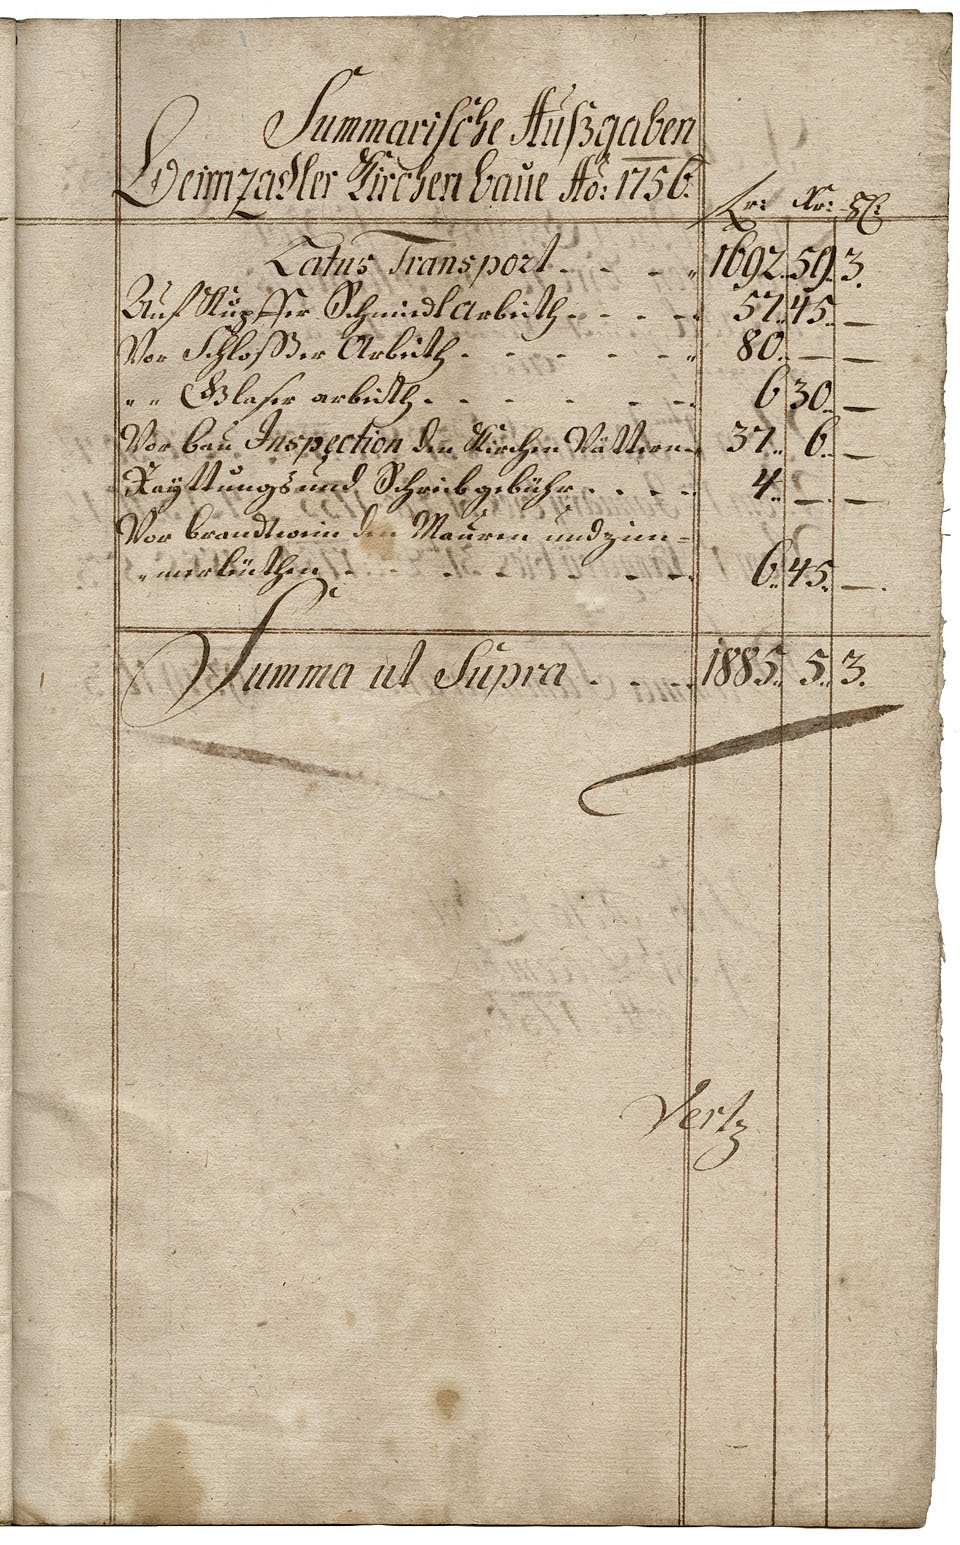 Summarische Außgaben
Deimzadler Kirchen baue Ao: 1756.
fr: Kr: Hl:
Latus Transport - - - " 1692. 59. 3.
Auf Kupffer Schmidt Arbeith - - - - 57. 45. —
Vor Schlosser Arbeith - - - - - " 80. — —
" " Glaser arbeith - - - - - - 6 30. —
Vor bau Inspection den Kirchen Vättern - 37. 6. —
Rayttungs und Schreibgebühr - - - - 4. — —
Vor brandtwein den Maurern und zim=
"merleüthen - - - - - - - 6. 45. —
Summa ut Supra - - - - 1885. 5. 3.
Vertz